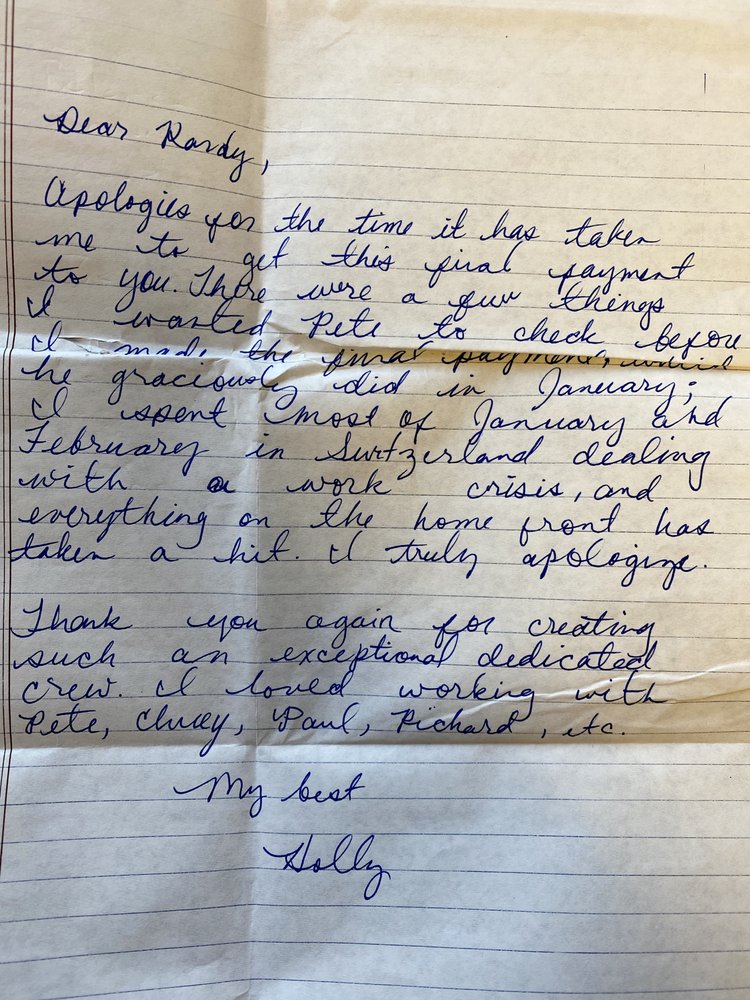 Dear Randy,
Apologies for the time it has taken
me to get this final payment
to you. There were a few things
I wanted Pete to check before
I made the final payment, which
he graciously did in January;
I spent most of January and
February in Switzerland dealing
with a work crisis, and
everything on the home front has
taken a hit. I truly apologize.
Thank you again for creating
such an exceptional dedicated
crew. I loved working with
Pete, Paul, Richard, etc.
My best
Holly